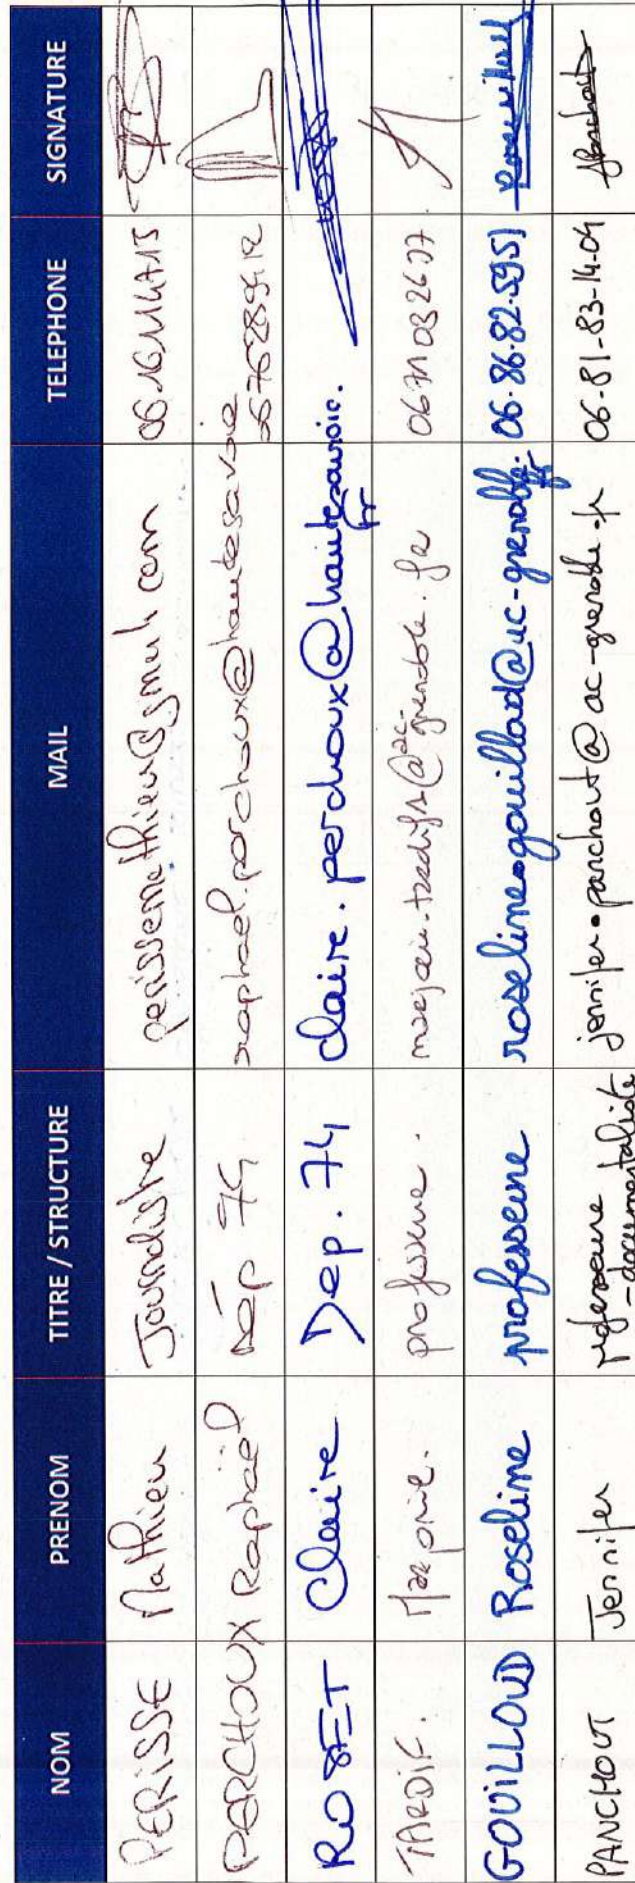 NOM PRENOM TITRE / STRUCTURE MAIL TELEPHONE SIGNATURE
PERISSE Mathieu Journaliste perissemathieu@gmail.com 06.16.11.47.15
PERCHOUX Raphaël Dép 74 raphael.perchoux@hautesavoie 0676289412
ROSET Claire Dep. 74 claire.perchoux@hautesavoie.
fr
TARDIF. Marjorie. professeure. marjorie.tardif1@ac-grenoble.fr 0671032677
GOUILLOUD Roseline professeure roseline.gouilloud@ac-grenoble. 06.86.82.5951
fr
PANCHOUT Jennifer professeure jennifer.panchout@ac-grenoble.fr 06-81-83-14-04
-documentaliste